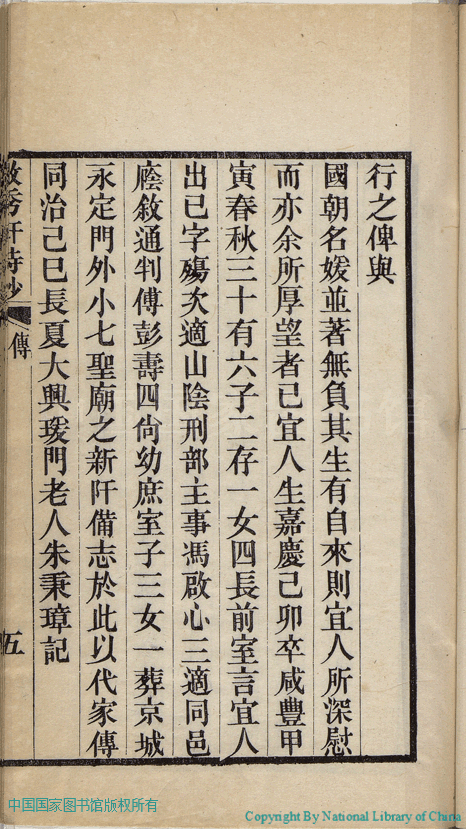 行之俾與
國朝名媛並著無負其生有自來則宜人所深慰
而亦余所厚望者已宜人生嘉慶己卯卒咸豐甲
寅春秋三十有六子二存一女四長前室言宜人
出已字殤次適山陰刑部主事馮啟心三適同邑
廕敘通判傅彭壽四尙幼庶室子三女一葬京城
永定門外小七聖廟之新阡備志於此以代家傳
同治己巳長夏大興瑗門老人朱秉璋記
秀軒詩鈔
傳
五
中国国家图书馆版权所有
Copyright By National Library of China